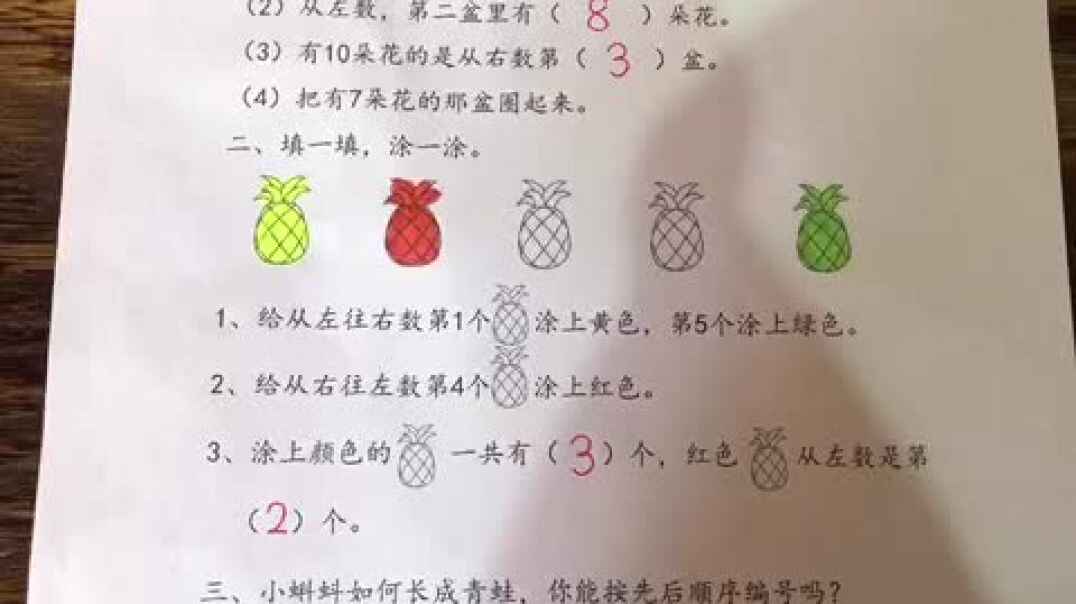 (2) 从左数，第二盆里有（ 8 ）朵花。
(3) 有10朵花的是从右数第（ 3 ）盆。
(4) 把有7朵花的那盆圈起来。
二、填一填，涂一涂。
1、给从左往右数第1个涂上黄色，第5个涂上绿色。
2、给从右往左数第4个涂上红色。
3、涂上颜色的一共有（3）个，红色从左数是第
（2）个。
三、小蝌蚪如何长成青蛙，你能按先后顺序编号吗？